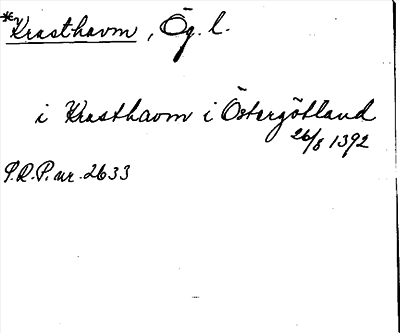 *Krasthavm, Ög. l.
i Krasthavm i Östergötland
26/8 1392
P.R.P. nr. 2633